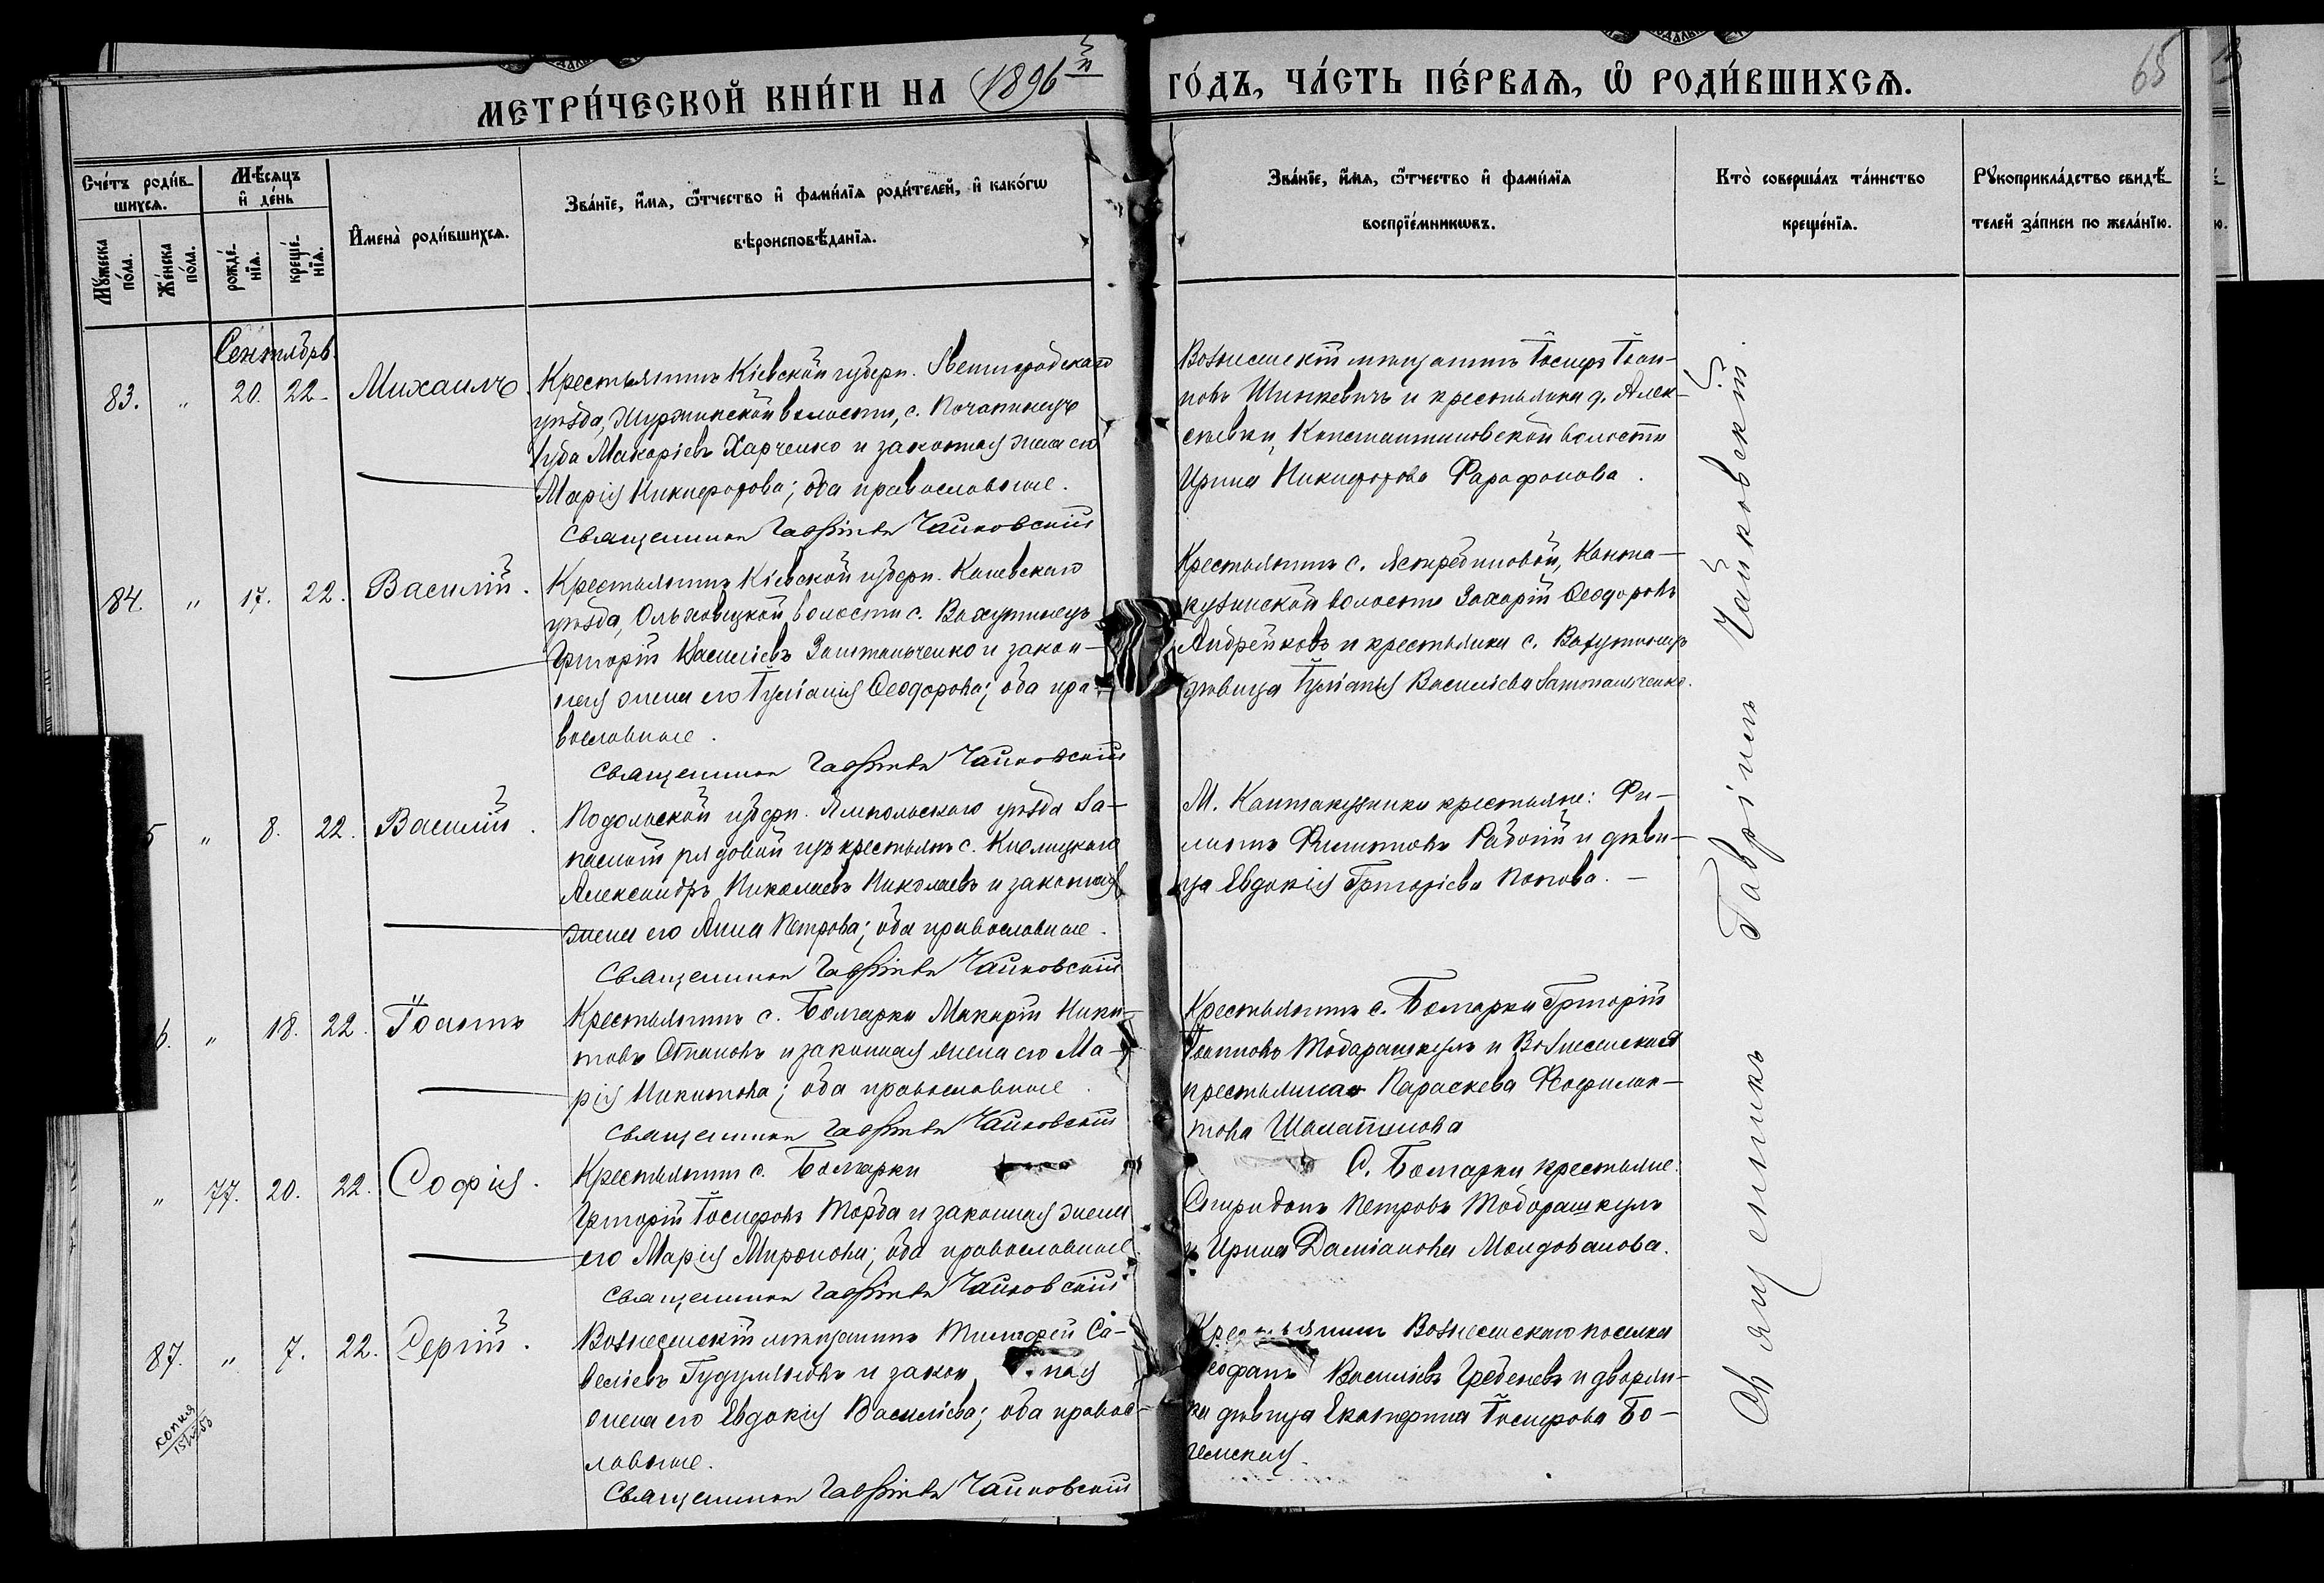 МЕТРИ́ЧЕСКОЙ КНИ́ГИ НА 1896й ГО́ДЪ, ЧА́СТЬ ПЕ́РВАѦ, Ѡ҆ РОДИ́ВШИХСѦ.
65
Сче́тъ роди́в-
шихсѧ.
Мꙋ́жеска по́ла.
Же́нска по́ла.
Мѣ́сѧцъ
и҆ де́нь
рожде́-
нїѧ.
креще́-
нїѧ.
И҆мена̀ роди́вшихсѧ.
Зва́нїе, и҆́мѧ, ѻ҆́тчество и҆ фами́лїѧ роди́телей, и҆ како́гѡ
вѣроисповѣ́данїѧ.
Зва́нїе, и҆́мѧ, ѻ҆́тчество и҆ фами́лїѧ
воспрїе́мникѡвъ.
Кто̀ соверша́лъ та́инство
креще́нїѧ.
Рꙋкоприкла́дство свидѣ́-
телей за́писи по жела́нїю.
Сентябрь
83. „ 20. 22. Михаилъ
Крестьянинъ Кіевской губерн. Звенигородскаго
уѣзда, волости, с. Почапинецъ
Іуда Макаріевъ Харченко и законная жена его
Марія Никифорова; оба православные.
Священникъ Гавріилъ Чайковскій
Вознесенскій мѣщанинъ Іосифъ Іоан-
новъ Шинкевичъ и крестьянка д. Алек-
сѣевки, Константиновской волости
Ирина Никифорова Фарафонова.
84. „ 17. 22. Василій.
Крестьянинъ Кіевской губерн. Каневскаго
уѣзда, Ольховецкой волости с.
Григорій Василіевъ и закон-
ная жена его Іуліанія Ѳеодорова; оба пра-
вославные.
Священникъ Гавріилъ Чайковскій
Крестьянинъ с. Ястребиновой, Канта-
кузинской волости Захарій Ѳеодоровъ
Андрейковъ и крестьянка с.
дѣвица Іуліанія Василіева
5 „ 8. 22. Василій.
Подольской губерн. Ямпольскаго уѣзда За-
пасной рядовой изъ крестьянъ с.
Александръ Николаевъ Николаевъ и законная
жена его Анна Петрова; оба православные.
Священникъ Гавріилъ Чайковскій
М. Кантакузинки крестьяне: Фи-
липпъ Филипповъ Рабогій и дѣви-
ца Евдокія Григоріева Попова. —
6. „ 18. 22. Іоаннъ
Крестьянинъ с. Болгарки Макарій Ники-
товъ Степановъ и законная жена его Ма-
рія Никитова; оба православные
Священникъ Гавріилъ Чайковскій
Крестьянинъ с. Болгарки Григорій
Іоанновъ Тодорашкулъ и Вознесенская
крестьянка Параскева Ѳеофилак-
това
„ 77. 20. 22. Софія.
Крестьянинъ с. Болгарки
Григорій ІосифовъМорда и законная жена
его Марія Миронова; оба православные
Священникъ Гавріилъ Чайковскій
С. Болгарки крестьяне:
Спиридонъ Петровъ Тодорашкулъ
и Ирина Даміанова Молдованова.
87. „ 7. 22. Сергій.
Вознесенскій мѣщанинъ Тимофей Са-
веліевъ и закон ная
жена его Евдокія Василіева; оба правос-
лавные.
Священникъ Гавріилъ Чайковскій
Крестьянинъ Вознесенскаго поселка
Ѳеофанъ Василіевъ Гребеневъ и дворян-
ка дѣвица Екатерина Іосифова Бо-
гемская.
копия
Священникъ Гавріилъ Чайковскій.